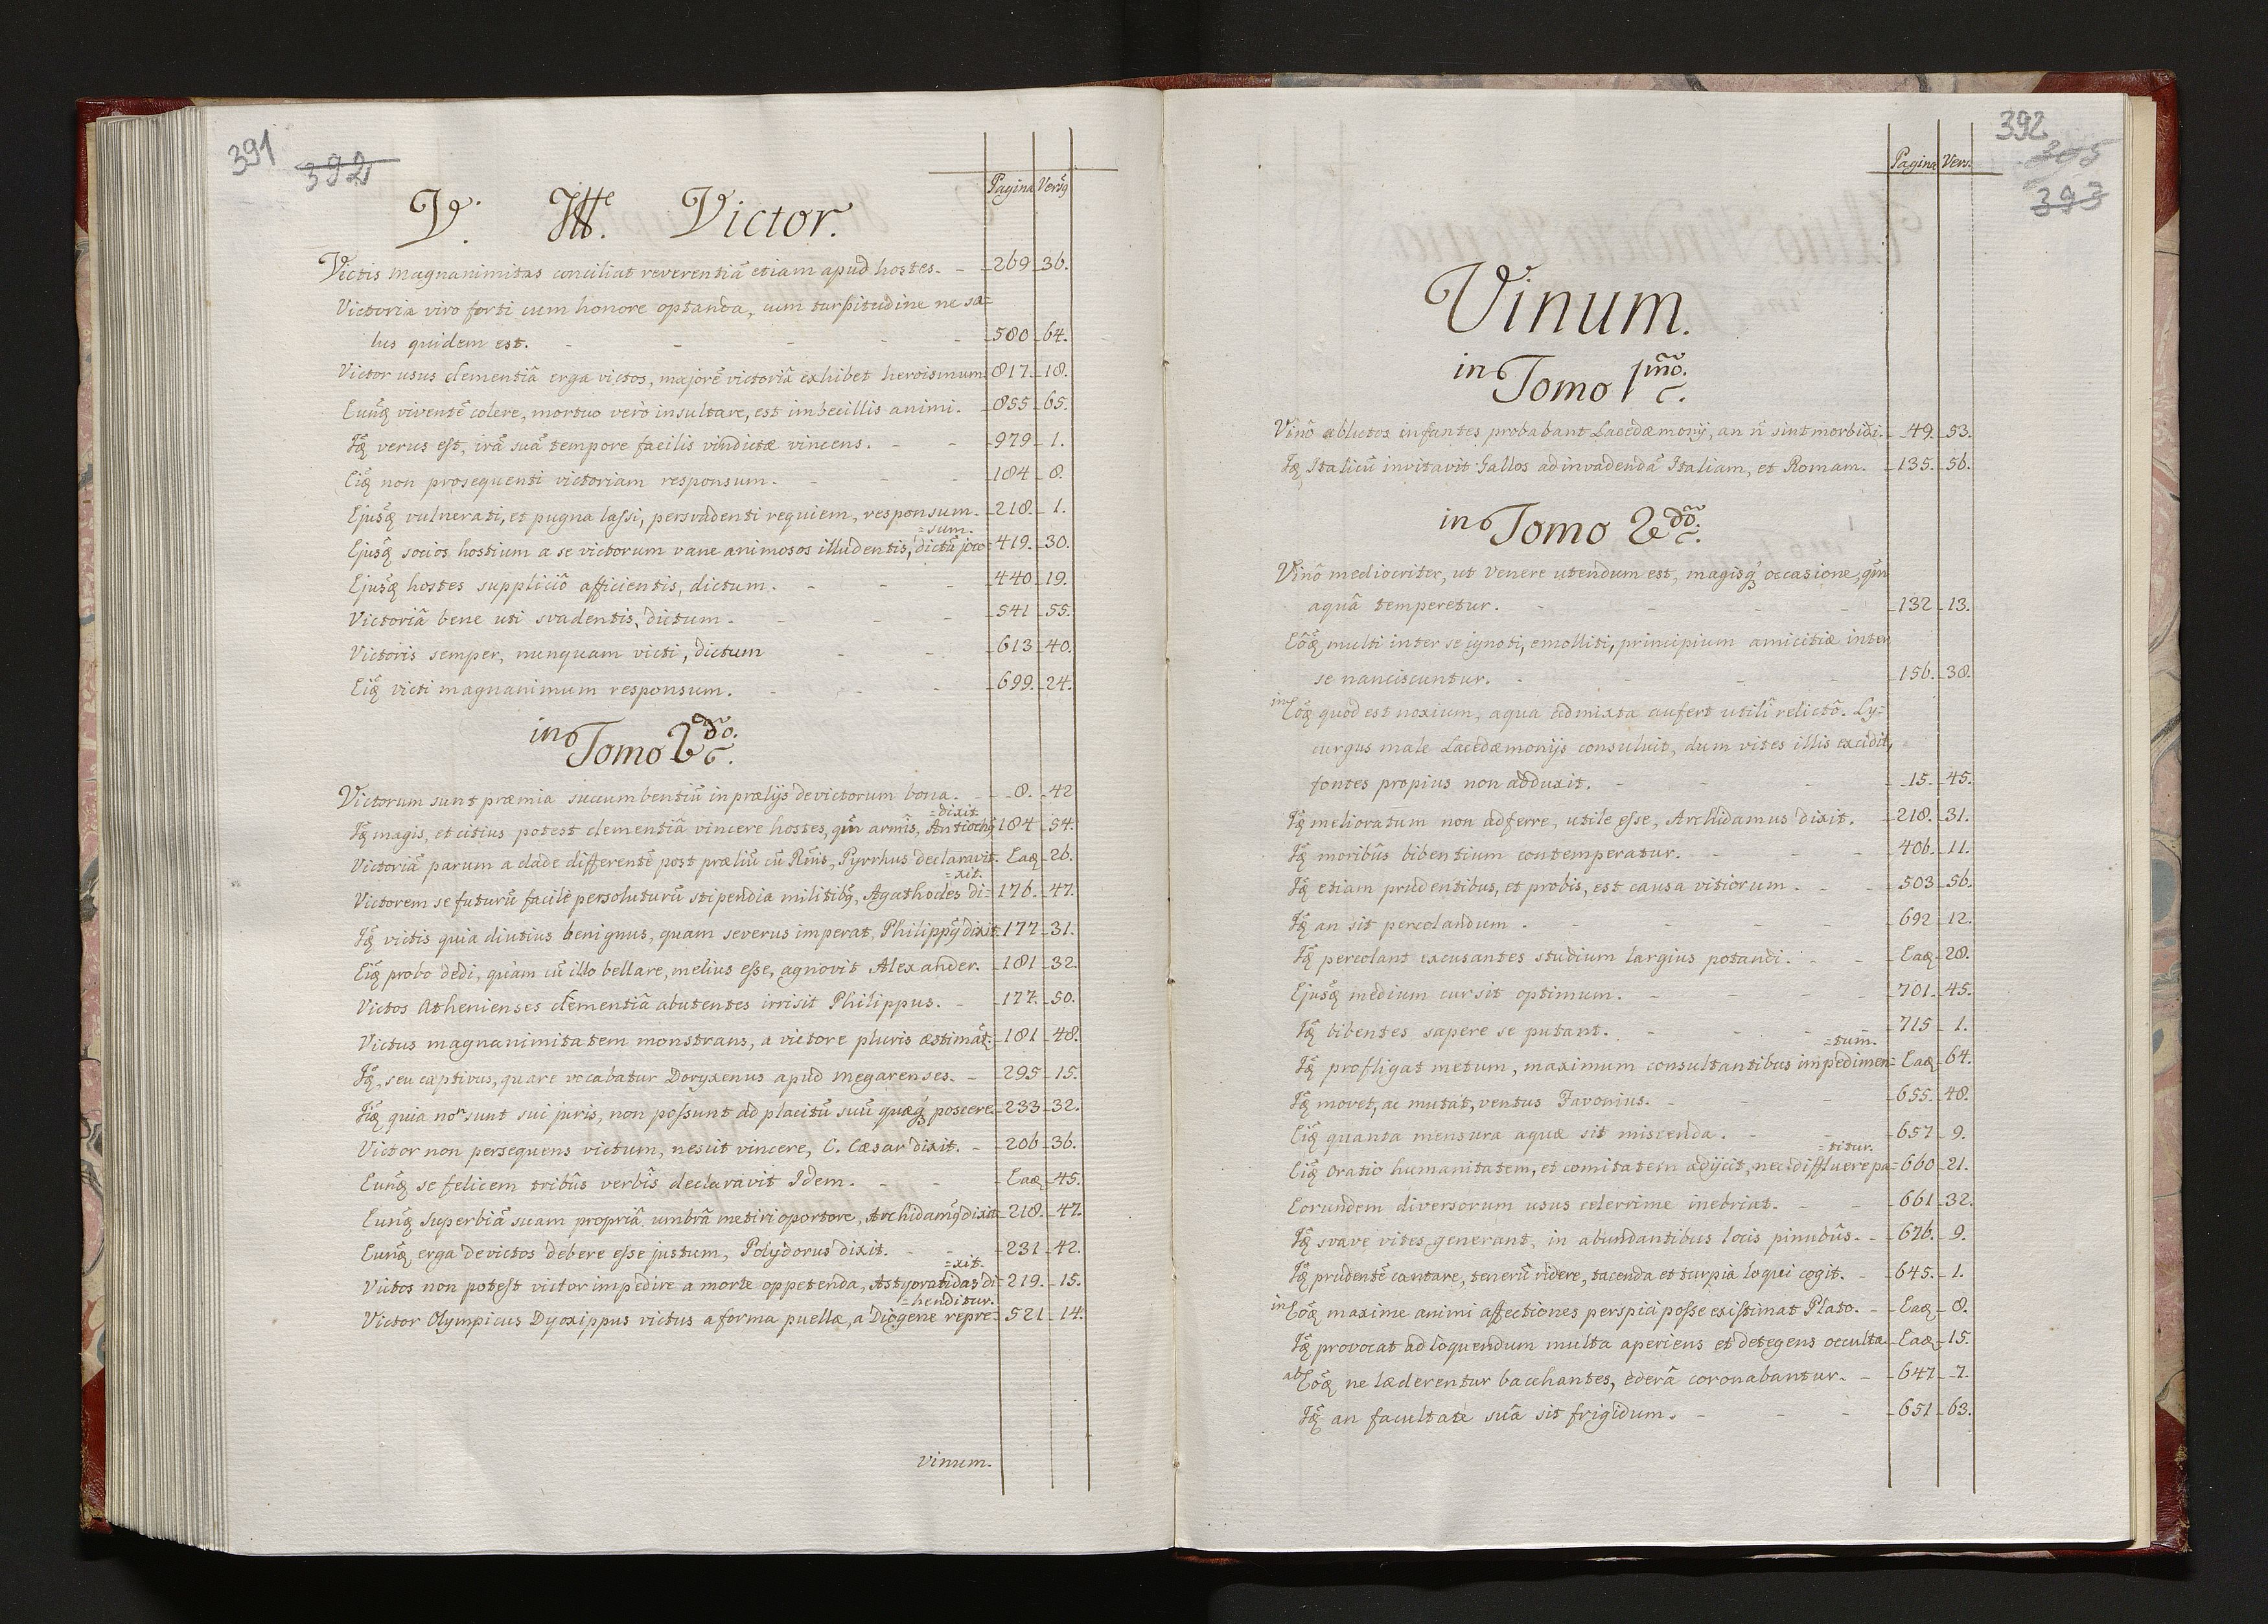 391 392
Pagina Vers9
V. Itte. Victor.
Victis magnanimitas conciliat reverentiã etiam apud hostes. - 269 36.
Victoria viro forti cum honore optanda, cum turpitudine ne sa=
lus quidem est. - - - - - 580 64.
Victor usus clementiâ erga victos, majorẽ victoriâ exhibet heroismum. 817. 18.
Eunq̃ viventẽ colere, mortuo verò insultare, est imbecillis animi. 855 65.
Iq̃ verus est, irã suã tempore facilis vindictæ vincens. - - 979 1.
Eiq̃ non prosequenti victoriam responsum. - - - 184 8.
Ejusq̃ vulnerati, et pugna lassi, persvadenti requiem, responsum. 218. 1.
=sum.
Ejusq̃ socios hostium a se victorum vane animosos illudentis, dictũ joco= 419. 30.
Ejusq̃ hostes suppliciô afficientis, dictum. - - - 440 19.
Victoriâ bene uti svadentis, dictum. - - - 541 55.
Victoris semper, nunquam victi, dictum - - 613 40.
Eiq̃ victi magnanimum responsum. - - - 699. 24.
in Tomo 2do.
Victorum sunt præmia succumbentiũ in prælijs devictorum bona. - 8. 42
=dixit
Iq̃ magis, et citius potest clementiâ vincere hostes, qũm armis, Antioch9 184 54.
Victoriã parum a clade differentẽ post præliũ cũ Rñis, Pyrrhus declaravit. Eaq̃ 26.
=xit.
Victorem se futurũ facilè persoluturũ stipendia militib9, Agathocles di= 176. 47.
Iq̃ victis quia diutius benignus, quam severus imperat, Philipp9 dixit. 177 31.
Eiq̃ probo dedi, quàm cũ illo bellare, melius esse, agnovit Alexander. 181 32.
Victos Athenienses clementiâ abutentes irrisit Philippus. - 177. 50.
Victus magnanimitatem monstrans, a victore pluris æstimat̃. 181 48.
Iq̃, seu captivus, quare vocabatur Doryxenus apud Megarenses. - 295 15.
Iiq̃ quia non sunt sui juris, non possunt ad placitũ suũ quæq3 poscere. 233 32.
Victor non persequens victum, nescit vincere, C. Cæsar dixit. - 206 36.
Eunq̃ se felicem tribûs verbîs declaravit Idem. - - Eaq̃ 45.
Eunq̃ superbiã suam propriâ umbrâ metiri oportere, Archidam9 dixit 218. 47.
Eunq̃ erga devictos debere esse justum, Polydorus dixit. - - 231 42.
=xit.
Victos non potest victor impedire a morte oppetenda, Astycratidas di= 219. 15.
=henditur.
Victor Olympicus Dyoxippus victus a forma puellæ, a Diogene repre= 521 14.
Vinum.
392
395
393
Pagina Vers.
Vinum.
in Tomo 1mõ.
Vinô ablutos infantes probabant Lacedæmonij, an ñ sint morbidi. 49. 53.
Iq̃ Italicũ invitavit Gallos ad invadendã Italiam, et Romam. 135. 56.
in Tomo 2dõ.
Vinô mediocriter, ut Venere utendum est, magisq3 occasione, qũm
aquâ temperetur. - - - - 132 13.
Eôq̃ multi inter se ignoti, emolliti, principium amicitiæ inter
se nanciscuntur. - - - - 156. 38.
in Eôq̃ quod est noxium, aqua admixta aufert utili relictô. Ly=
curgus male Lacedæmonijs consuluit, dum vites illis excidit,
fontes propius non adduxit. - - - 15. 45.
Iq̃ melioratum non adferre, utile esse, Archidamus dixit. - 218. 31.
Iq̃ moribûs bibentium contemperatur. - - - 406. 11.
Iq̃ etiam prudentibus, et probis, est causa vitiorum. - - 503 56.
Iq̃ an sit percolandum. - - - - 692 12.
Iq̃ percolant excusantes studium largius potandi. - - Eaq̃ 28.
Ejusq̃ medium cur sit optimum. - - - - 701. 45.
Iq̃ bibentes sapere se putant. - - - - 715 1.
=tum.
Iq̃ profligat metum, maximum consultantibus impedimen= Eaq̃ 64.
Iq̃ movet, ac mutat, ventus Favonius. - - - 655. 48.
Eiq̃ quanta mensura aquæ sit miscenda. - - 657 9.
=titur.
Eiq̃ oratio humanitatem, et comitatem adijcit, nec diffluere pa= 660 21.
Eorundem diversorum usus celerrime inebriat. - - 661 32.
Iq̃ svave vites generant, in abundantibus locis pinubûs. - 676. 9.
Iq̃ prudentẽ cantare, tenerũ ridere, tacenda et turpia loqui cogit. - 645. 1.
in Eôq̃ maxime animi affectiones perspici posse existimat Plato. - Eaq̃ 8.
Iq̃ provocat ad loquendum multa aperiens et detegens occulta. Eaq̃ 15.
ab Eôq̃ ne læderentur bacchantes, ederâ coronabantur. - 647 7.
Iq̃ an facultate suâ sit frigidum. - - - 651 63.